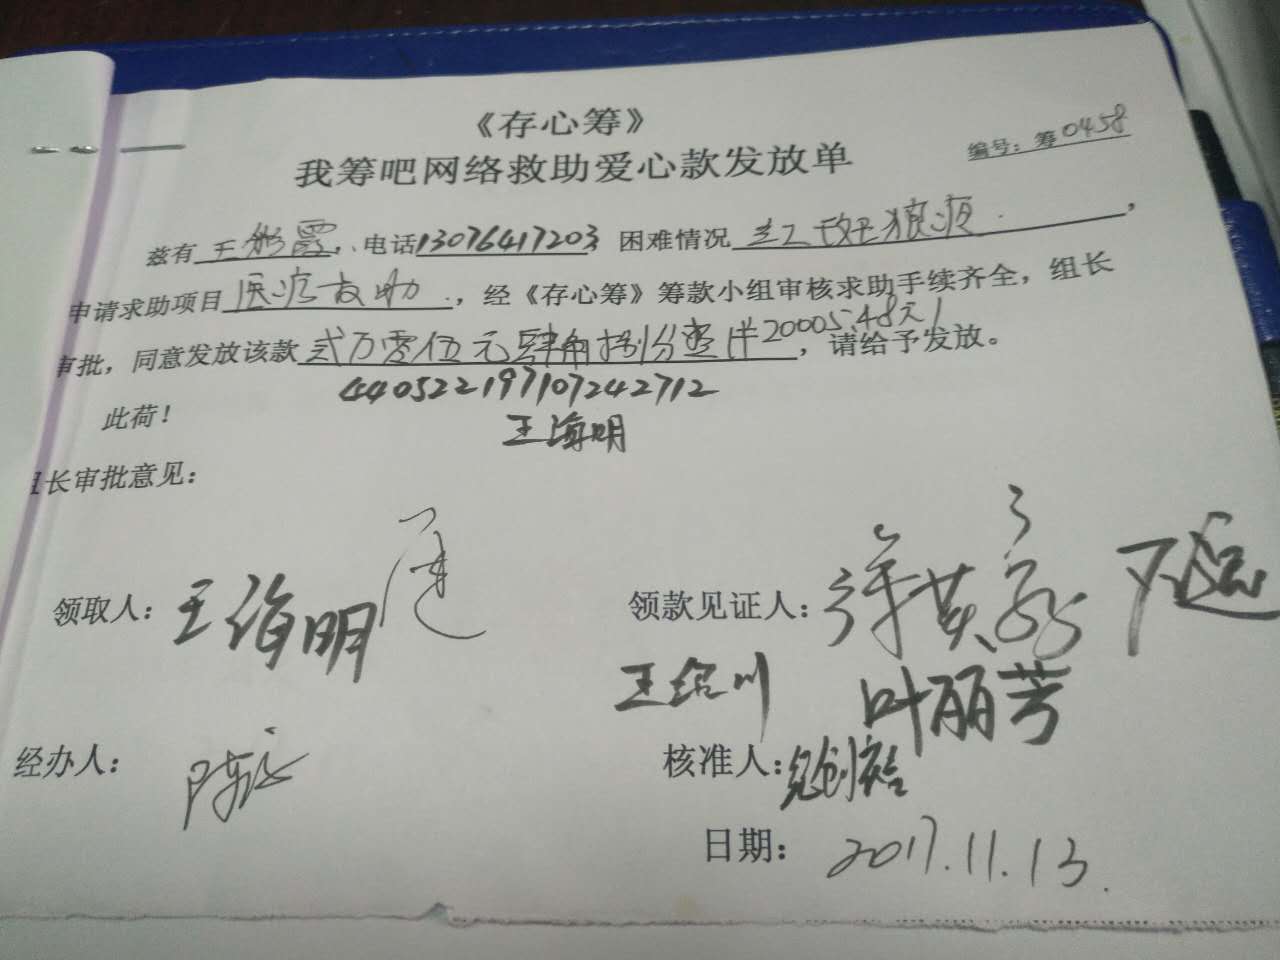 《存心筹》
我筹吧网络救助爱心款发放单
编号：筹0458
兹有王彩霞，电话13076417203 困难情况 红斑狼疮，
申请求助项目医疗救助，经《存心筹》筹款小组审核求助手续齐全，组长
审批，同意发放该款贰万零伍元肆角捌分整（¥20005.48元），请给予发放。
440522197107242712
此荷！
王海明
组长审批意见：
领取人：王海明
领款见证人：
王绍川 叶丽芳
经办人：
核准人：
日期：2017.11.13.